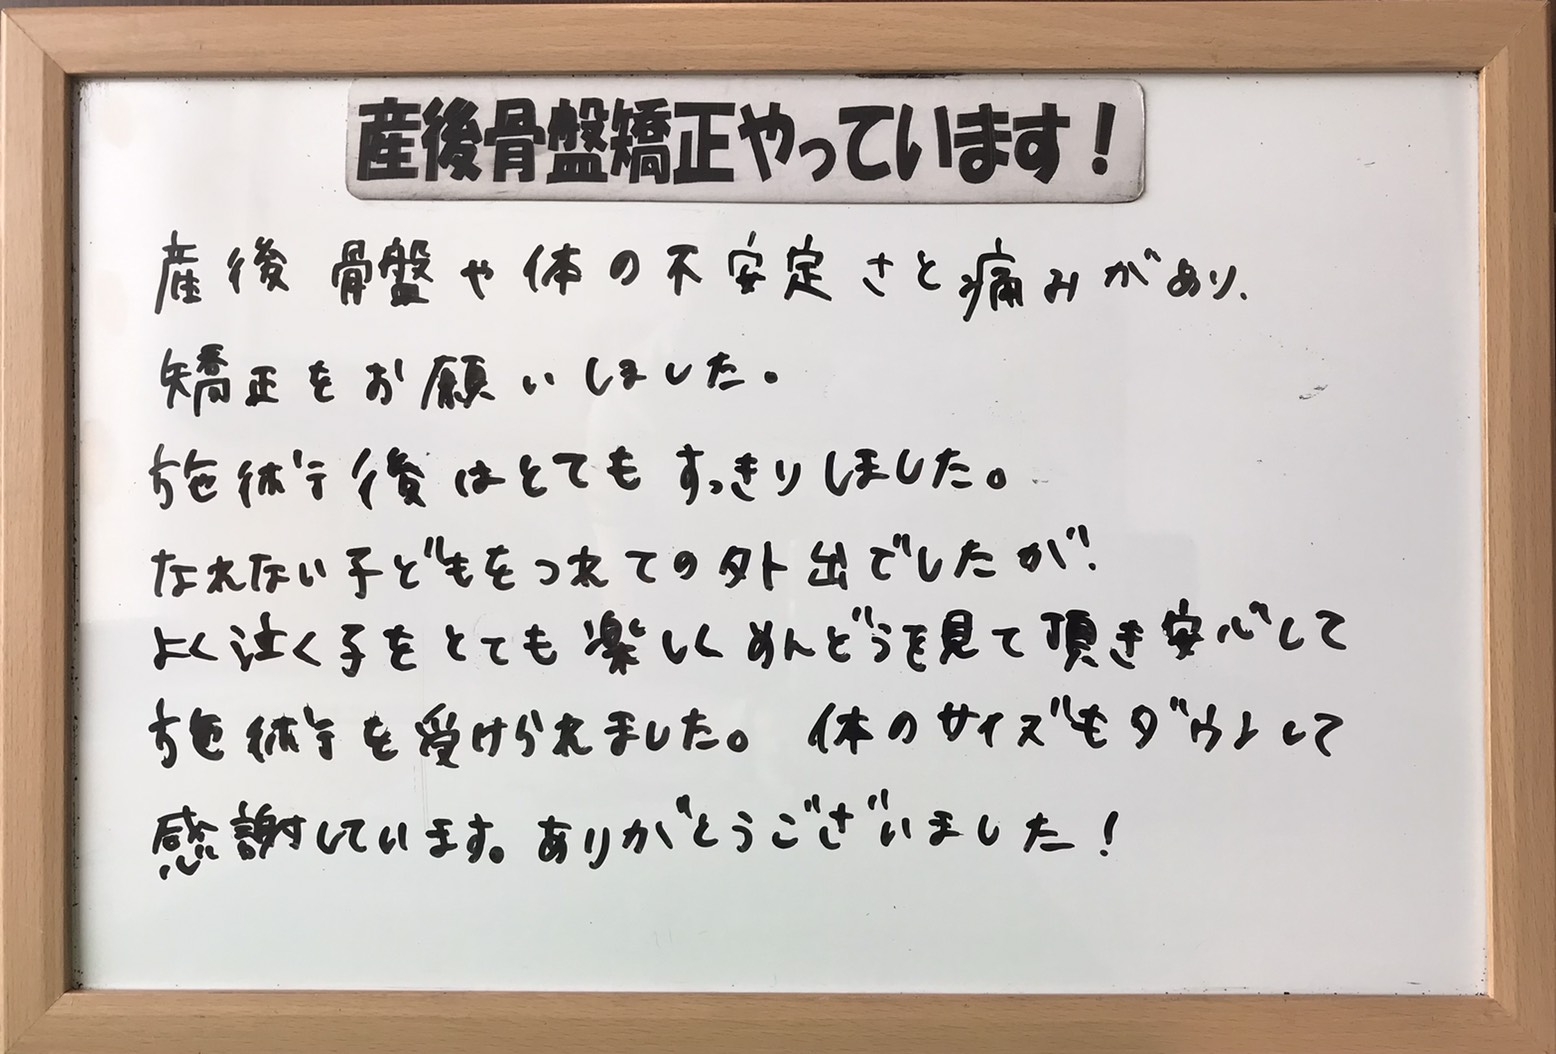 産後骨盤矯正やっています！
産後 骨盤や体の不安定さと痛みがあり、
矯正をお願いしました。
施術後はとてもすっきりしました。
なれない子どもをつれての外出でしたが、
よく泣く子をとても楽しくめんどうを見て頂き安心して
施術を受けられました。 体のサイズもダウンして
感謝しています。ありがとうございました！